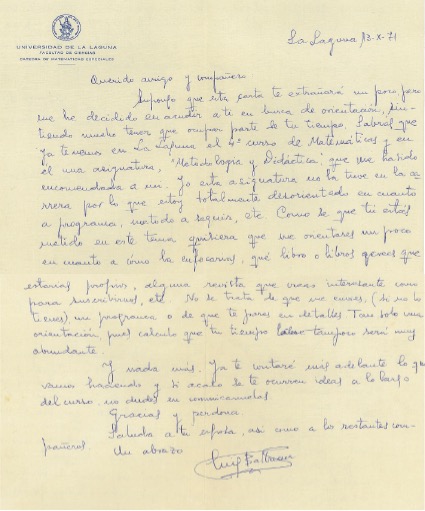 UNIVERSIDAD DE LA LAGUNA
FACULTAD DE CIENCIAS
CATEDRA DE MATEMATICAS ESPECIALES
La Laguna, 13-X-71
Querido amigo y compañero
Supongo que esta carta te extrañará un poco, pero
me he decidido en acudir a ti en busca de orientación, sin-
tiendo mucho tener que ocupar parte de tu tiempo. Sabrás que
ya tenemos en La Laguna el 4º curso de Matemáticas y en
él una asignatura, "Metodología y Didáctica", que me ha sido
encomendada a mí. Yo esta asignatura no la tuve en la ca-
rrera por lo que estoy totalmente desorientado en cuanto
a programa, método a seguir, etc. Como se que tú estás
metido en este tema quisiera que me orientases un poco
en cuanto a cómo he enfocarlos, qué libro o libros crees que
estarían propios, alguna revista que creas interesante como
para suscribirnos, etc. No se trata de que me envies, (si no lo
tienes) un programa o de que te pares en detalles. Tan solo una
orientación, pues calculo que tu tiempo tampoco será muy
abundante.
Y nada más. Ya te contaré más adelante lo que
vamos haciendo y si acaso se te ocurren ideas a lo largo
del curso no dudes en comunicárnoslas
Gracias y perdona.
Saluda a tu esposa, así como a los restantes com-
pañeros. Un abrazo
Luis Balbuena